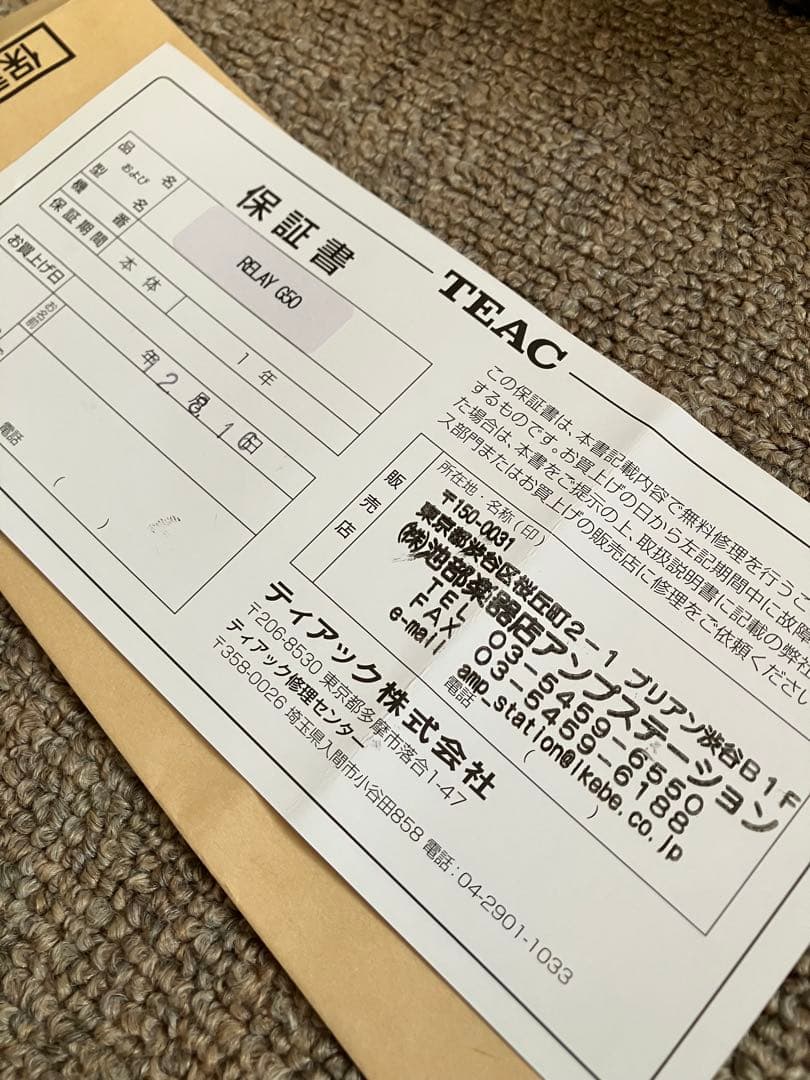 保
保証書
TEAC
品名
および
型名
RELAY G50
機番
保証期間
本体
1年
お買上げ日
年 月 日
12. 8. 16
お名前
電話 ( )
この保証書は、本書記載内容で無料修理を行うこ
するものです。お買上げの日から左記期間中に故障
た場合は、本書をご提示の上、取扱説明書に記載の弊社
ス部門またはお買上げの販売店に修理をご依頼ください
販売店
所在地・名称(印)
〒150-0031
東京都渋谷区桜丘町2-1 ブリアン渋谷B1F
(株)池部楽器店アンプステーション
TEL 03-5459-6550
FAX 03-5459-6188
e-mail amp_station@ikebe.co.jp
電話 ( )
ティアック株式会社
〒206-8530 東京都多摩市落合1-47
ティアック修理センター
〒358-0026 埼玉県入間市小谷田858 電話:04-2901-1033